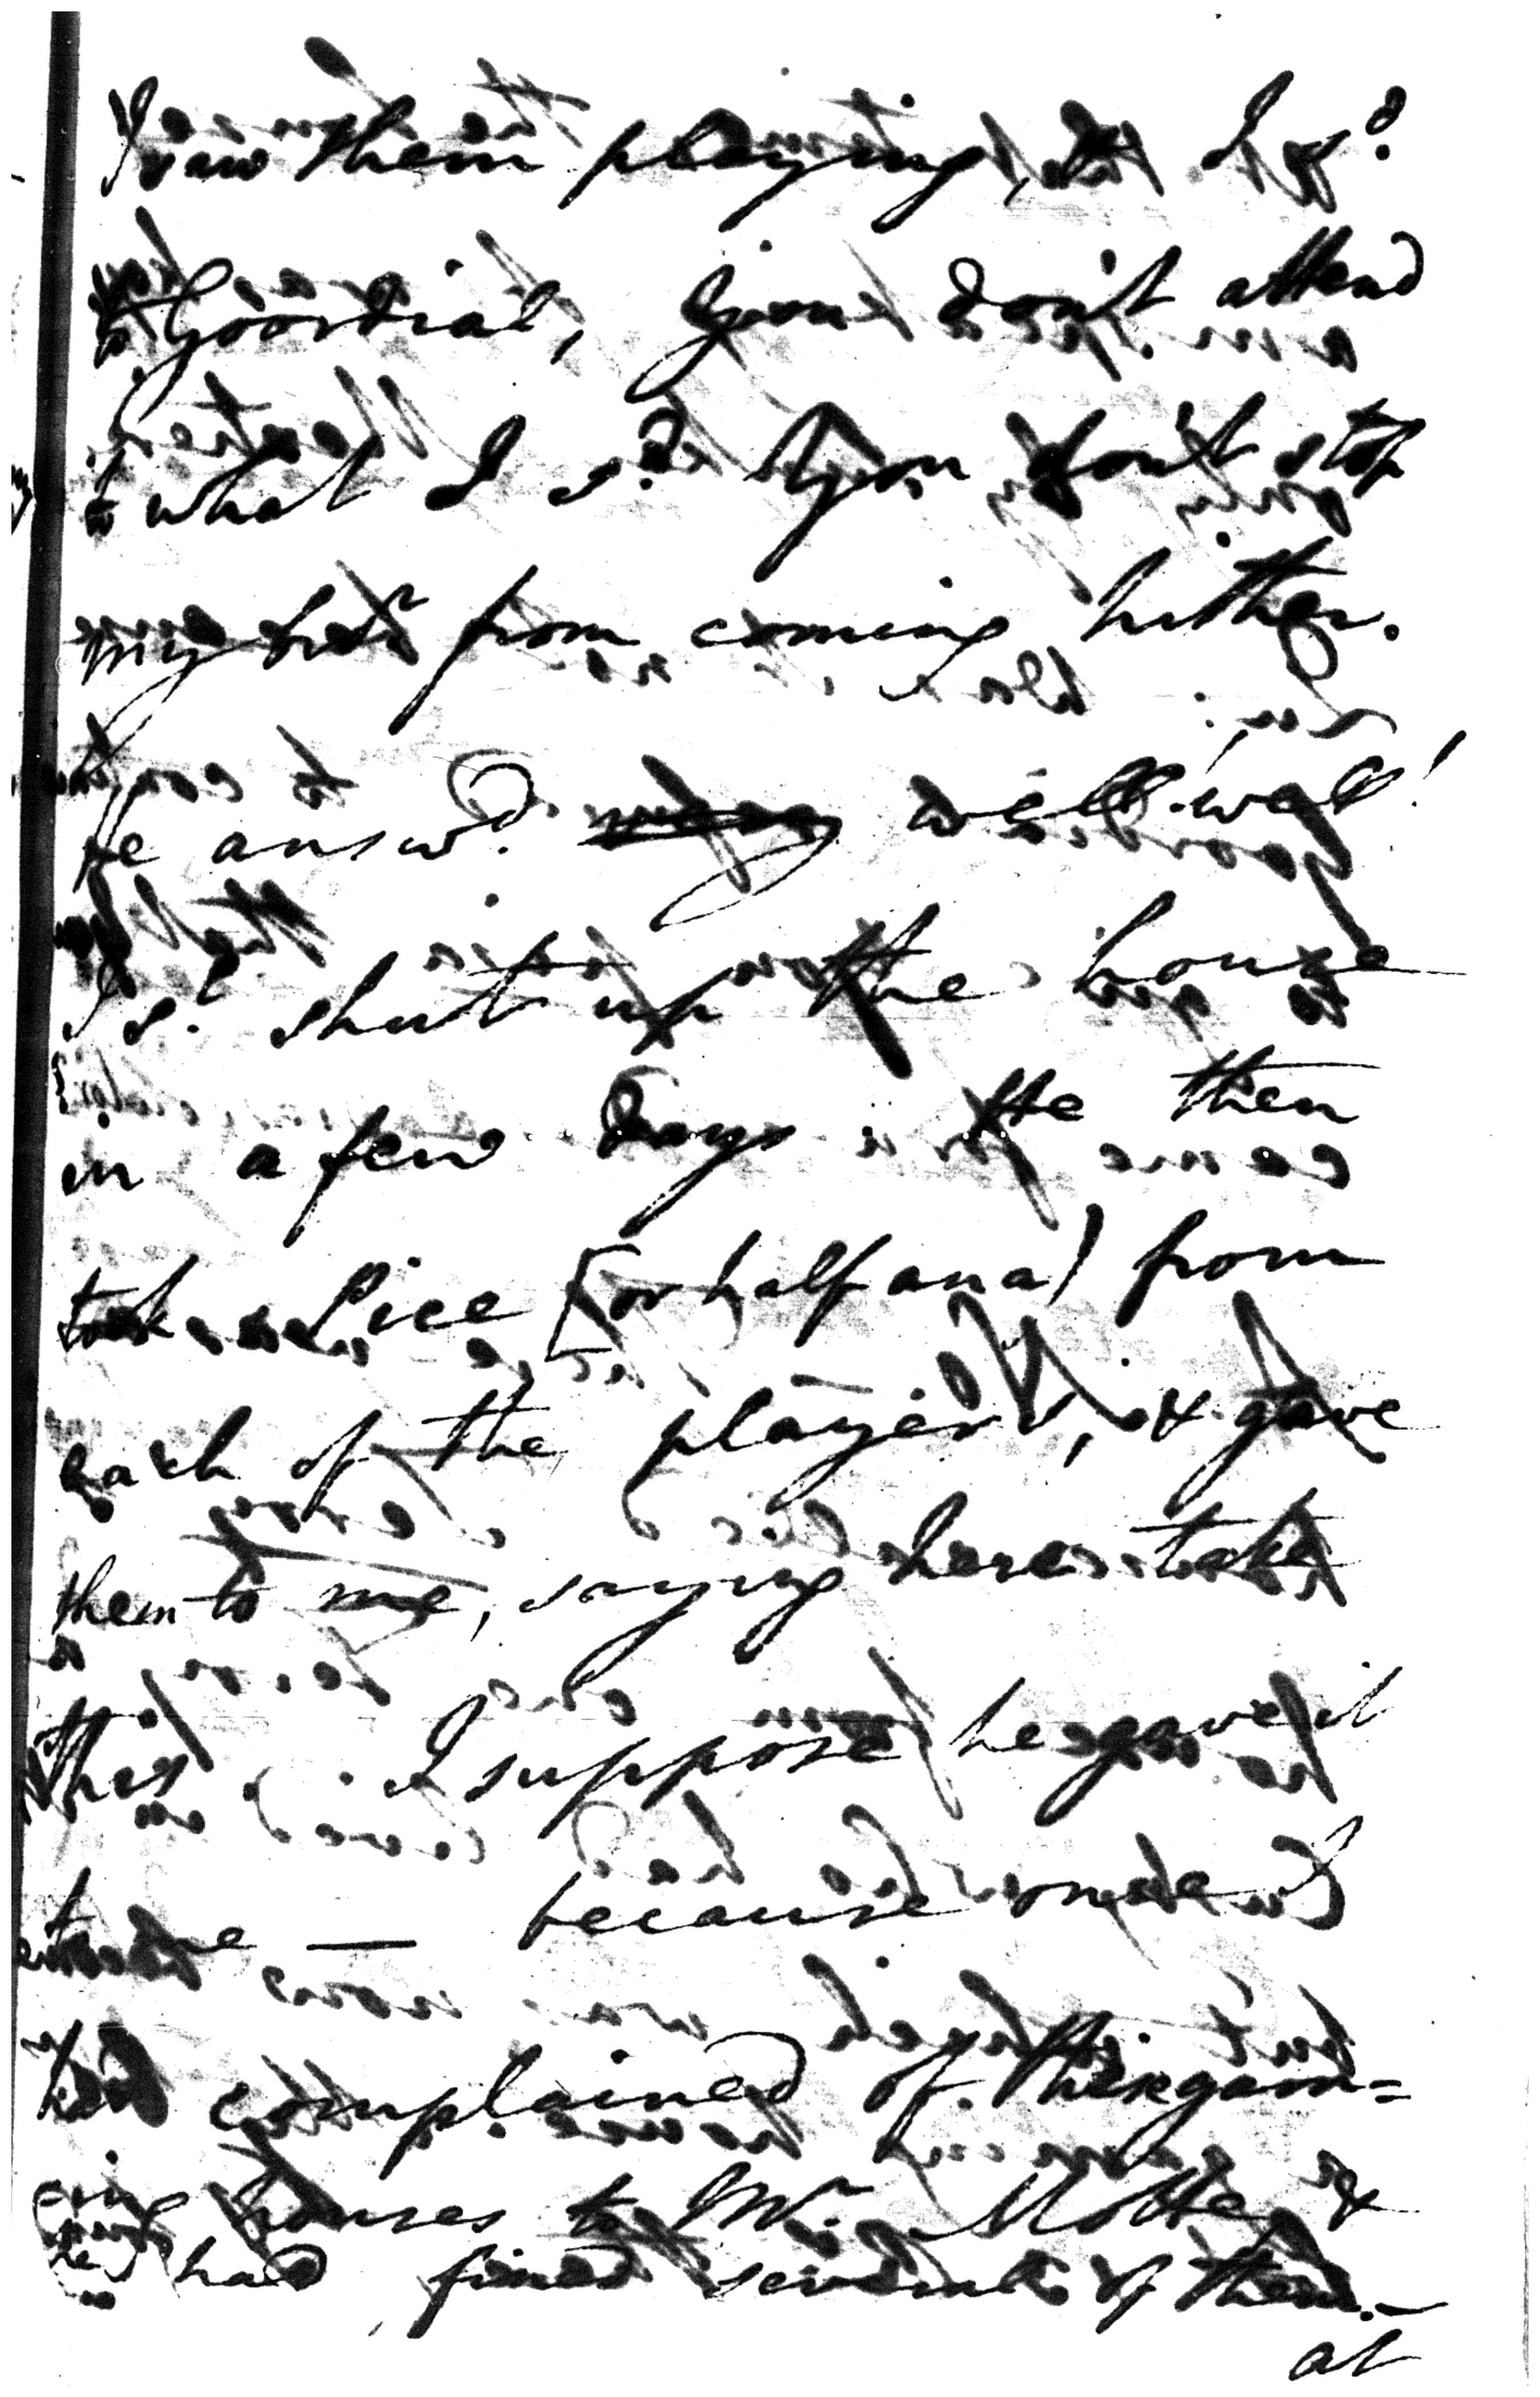 I saw them playing, & I sd
to Goordial, you don't attend
to what I sd. You don't stop
my brr from coming hither.
He answd. well! well!
I sd. shut up the house
in a few days. He then
took a Pice (or half ana) from
each of the players, & gave
them to me, saying here take
this. I suppose he gave it
to me — because one
had complained of the gam=
ing houses to Mr. Motte &
he had fined several of them.—
at